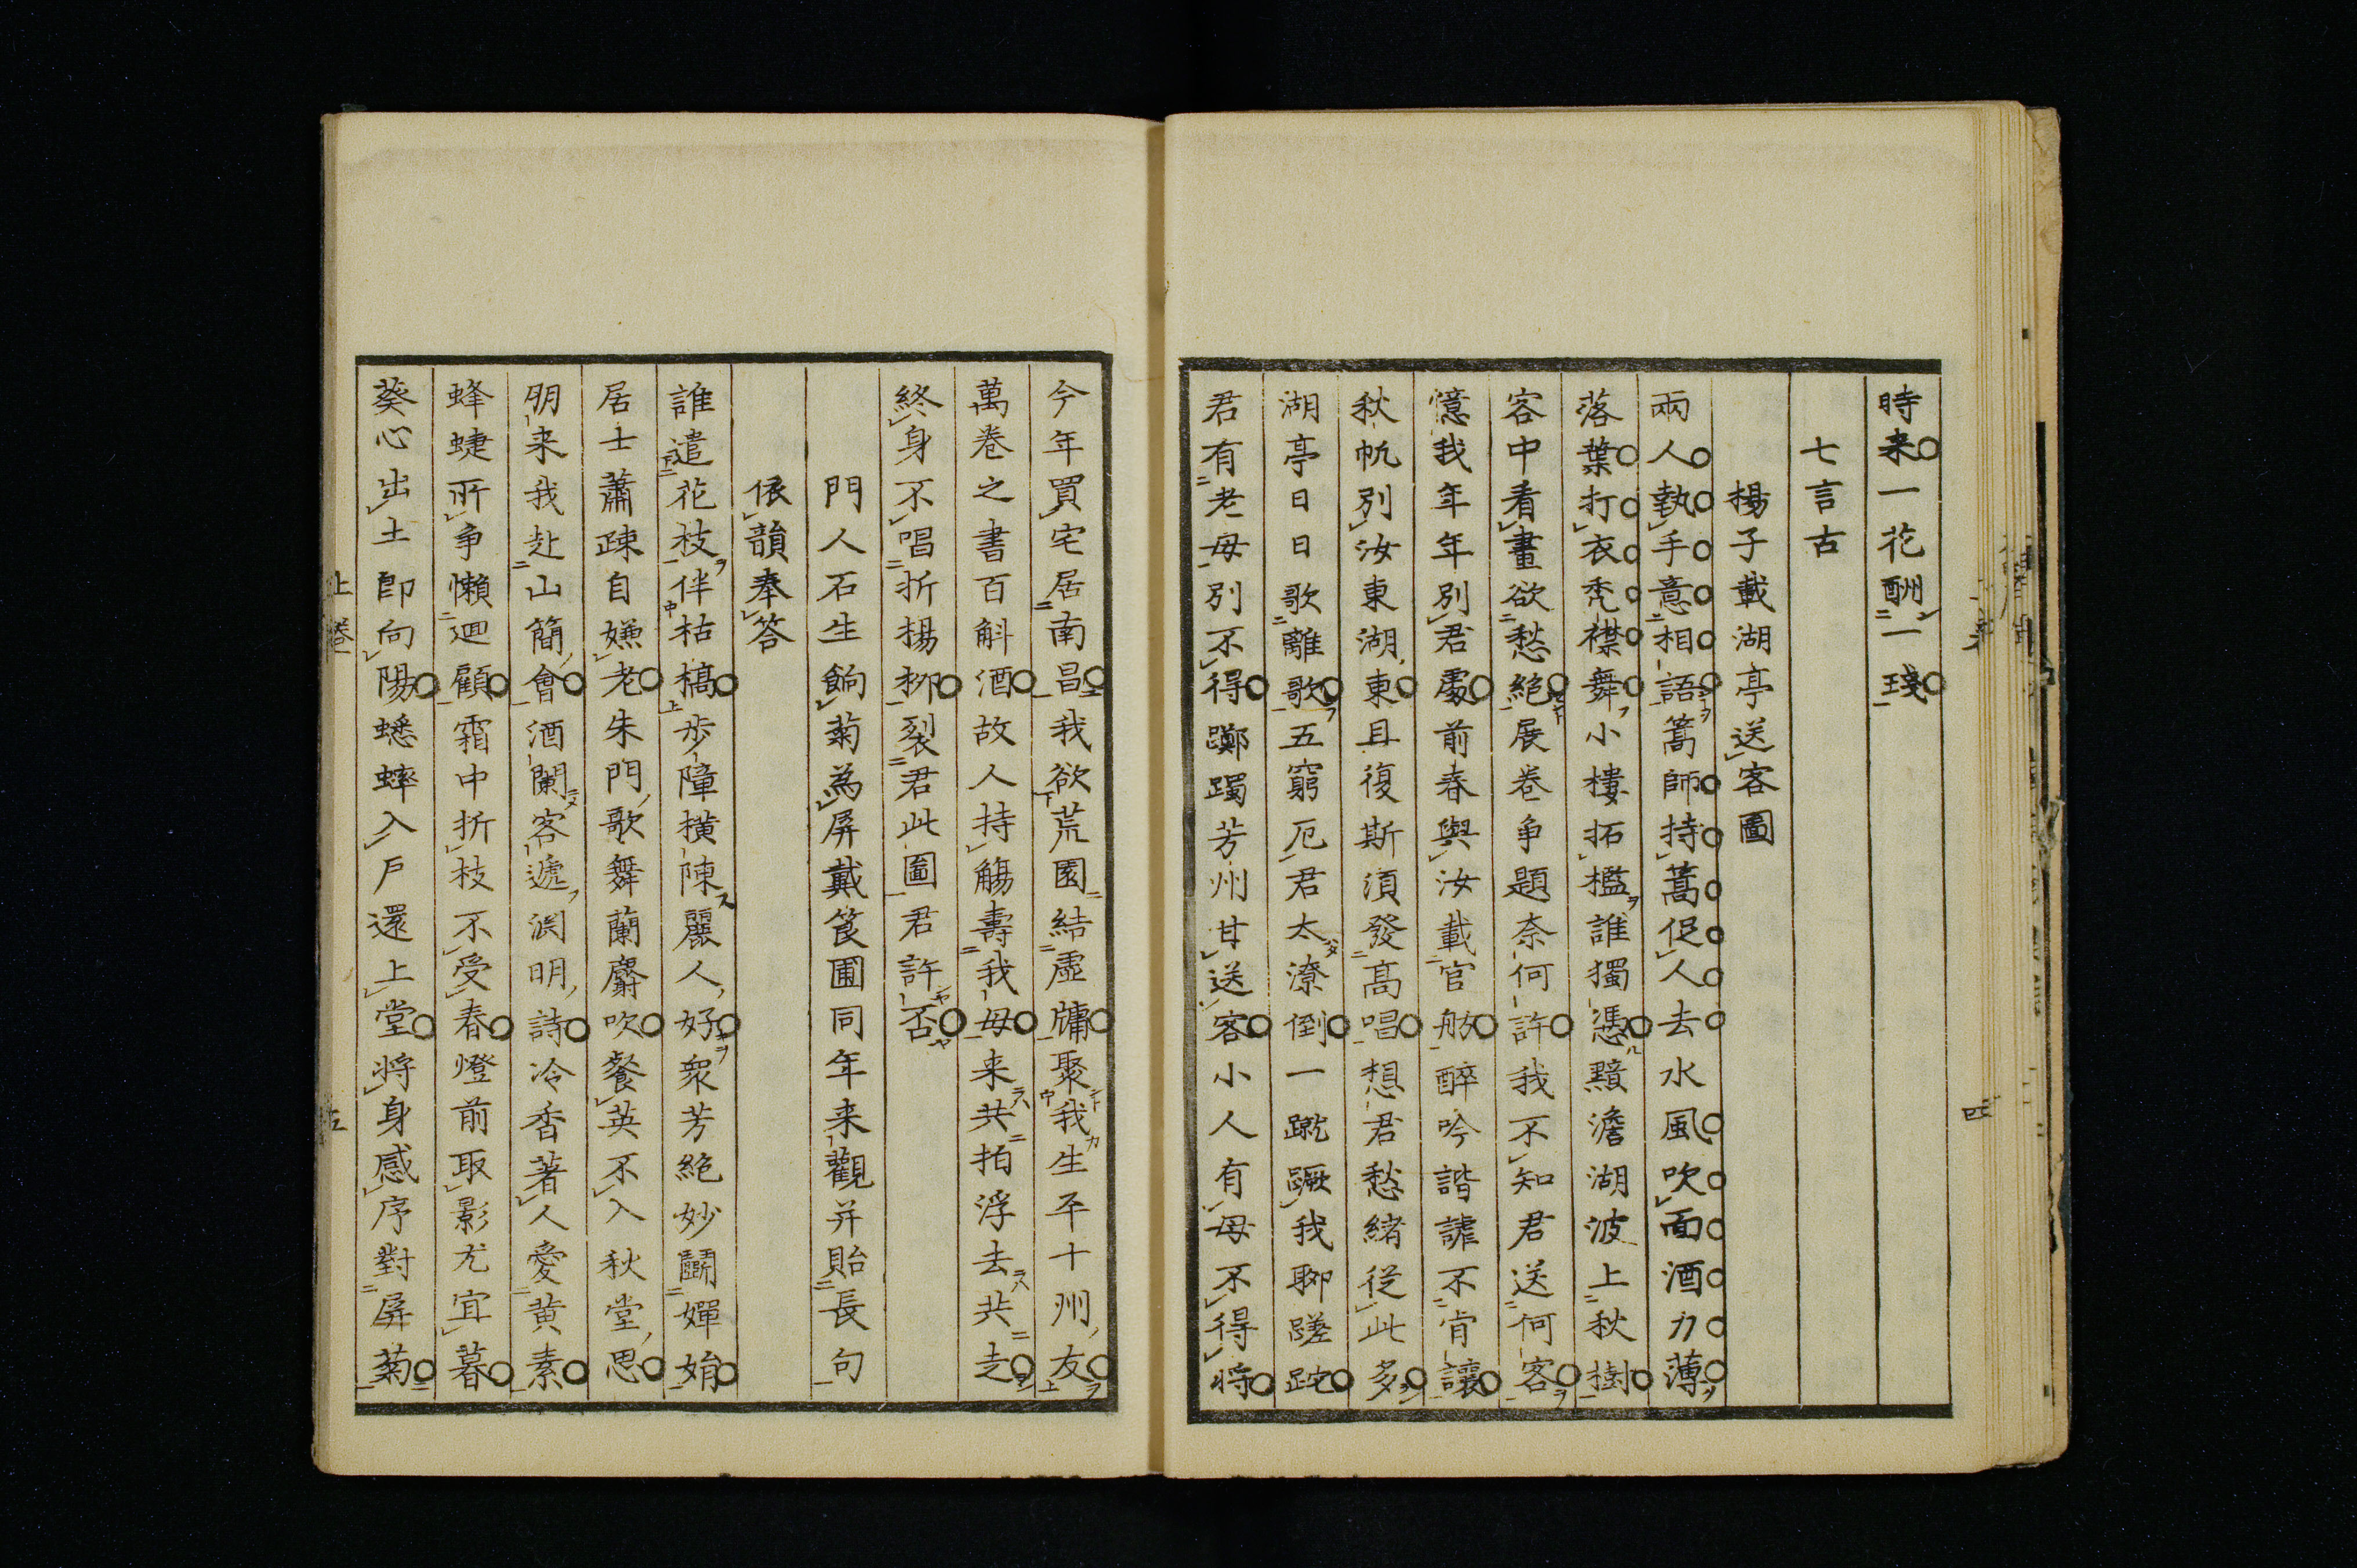 時来一花酬一琖
七言古
楊子載湖亭送客圖
兩人執手意相語篙師持蒿促人去水風吹面酒力薄
落葉打衣禿襟舞小樓拓檻誰獨憑黯澹湖波上秋樹
客中看畫欲愁絕展卷争題奈何許我不知君送何客
憶我年年別君處前春與汝載官舫醉吟諧謔不肯讓
秋帆別汝東湖東且復斯須發高唱想君愁緒從此多
湖亭日日歌離歌五窮厄君太潦倒一蹴蹶我聊蹉跎
君有老母別不得躑躅芳州甘送客小人有母不得將
今年買宅居南昌我欲荒園結虛牗聚我生平十州友
萬卷之書百斛酒故人持觴壽我母来共拍浮去共走
終身不唱折楊柳裂君此圖君許否
門人石生餉菊為屏戴筤圃同年来觀并貽長句
依韻奉答
誰遣花枝伴枯槁步障橫陳麗人好衆芳絕妙鬪嬋娟
居士蕭疎自嫌老朱門歌舞蘭麝吹餐英不入秋堂思
明来我赴山簡會酒闌客遞渊明詩冷香著人愛黄素
蜂蜨所争懶迴顧霜中折枝不受春燈前取影尤宜暮
葵心出土即向陽蟋蟀入戶還上堂將身感序對屏菊
上卷
四
五